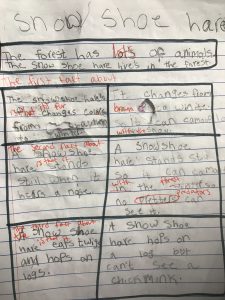 Snow Shoe hare
The forest has lots of animals.
The snow shoe hare lives in the forest
The first fact about
The snow shoe hare
is that its fur
changes color
from
It changes from
brown to white
so it can camou
with snow
The second fact about
A snow shoe
is that it
hare stands
still when it
hears a noise.
A snow shoe
hare stands still
So it can camou
with the forest
in the so
no predators can
see it.
The third fact about
the snow shoe
is that it
hare eats twigs
and hops on
logs.
A snow shoe
hare hops on
a log but
can't see a
chickmink.